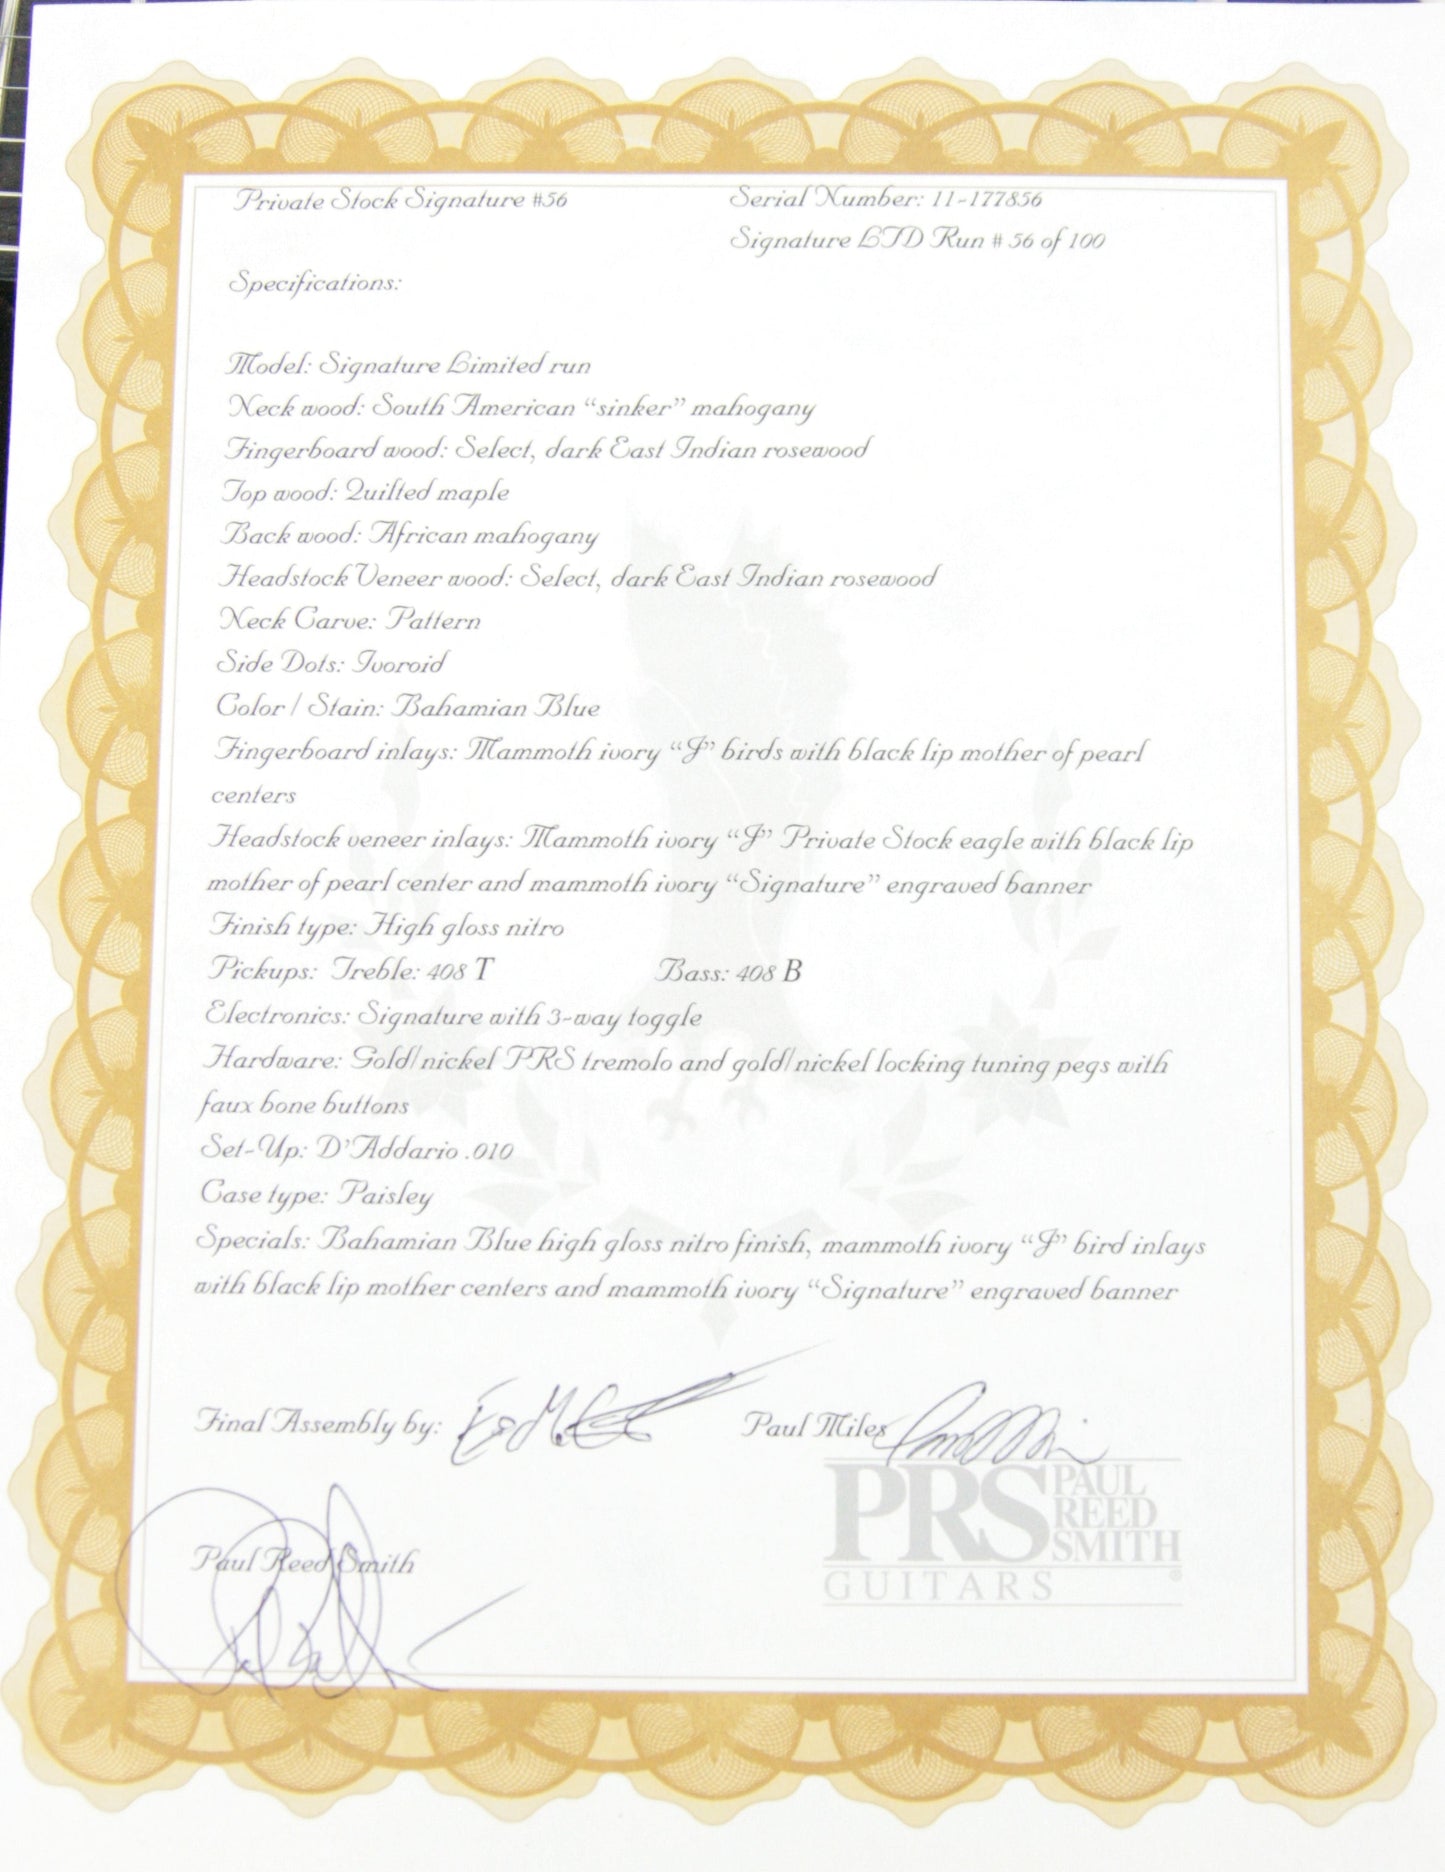 Private Stock Signature #56 Serial Number: 11-177856
Signature LTD Run # 56 of 100
Specifications:
Model: Signature Limited run
Neck wood: South American “sinker” mahogany
Fingerboard wood: Select, dark East Indian rosewood
Top wood: Quilted maple
Back wood: African mahogany
Headstock Veneer wood: Select, dark East Indian rosewood
Neck Carve: Pattern
Side Dots: Ivoroid
Color / Stain: Bahamian Blue
Fingerboard inlays: Mammoth ivory “J” birds with black lip mother of pearl
centers
Headstock veneer inlays: Mammoth ivory “J” Private Stock eagle with black lip
mother of pearl center and mammoth ivory “Signature” engraved banner
Finish type: High gloss nitro
Pickups: Treble: 408 T Bass: 408 B
Electronics: Signature with 3-way toggle
Hardware: Gold/nickel PRS tremolo and gold/nickel locking tuning pegs with
faux bone buttons
Set-Up: D’Addario .010
Case type: Paisley
Specials: Bahamian Blue high gloss nitro finish, mammoth ivory “J” bird inlays
with black lip mother centers and mammoth ivory “Signature” engraved banner
Final Assembly by: Paul Miles
PRS PAUL
REED
SMITH
GUITARS
Paul Reed Smith